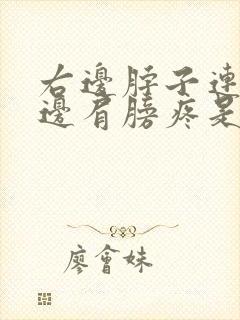 右邊脖子連
邊肩膀疼是
廖會妹